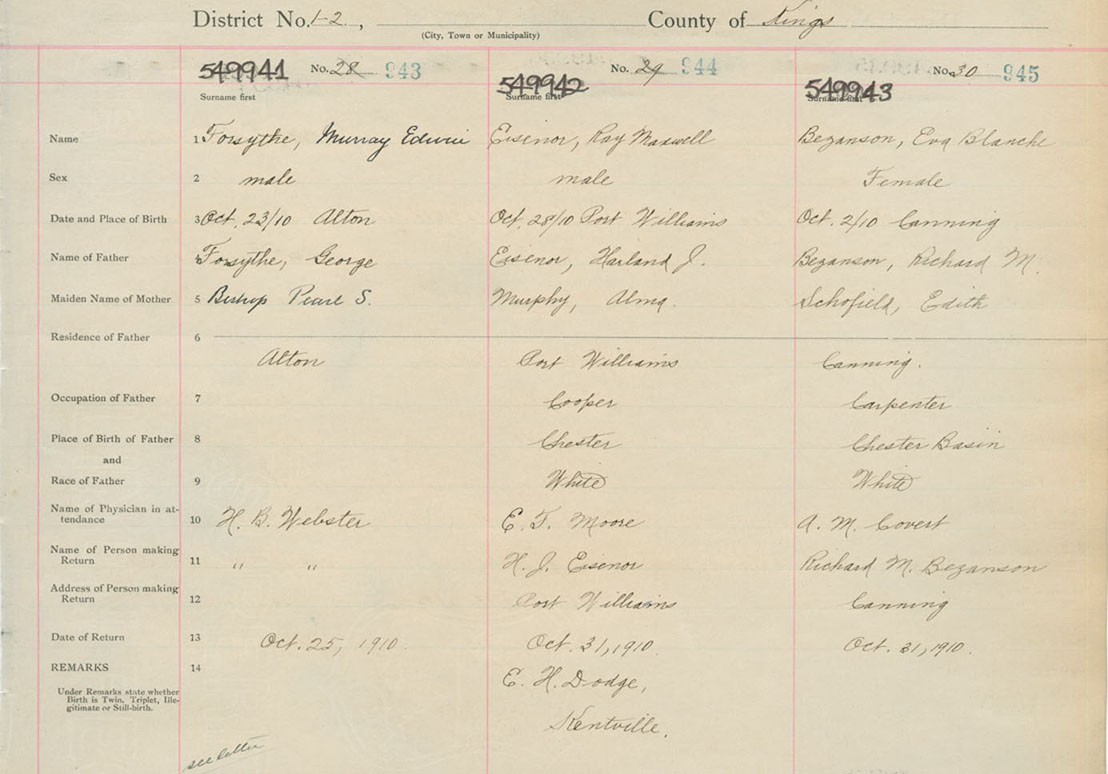 District No. 1-2, County of Kings
(City, Town or Municipality)
549941 No. 28 943 549942 No. 29 944 549943 No. 30 945
Surname first Surname first Surname first
Name 1 Forsythe, Murray Edwin Eisenor, Ray Maxwell Bezanson, Eva Blanche
Sex 2 male male Female
Date and Place of Birth 3 Oct. 23/10 Alton Oct. 28/10 Port Williams Oct. 2/10 Canning
Name of Father Forsythe, George Eisenor, Harland J. Bezanson, Richard M.
Maiden Name of Mother 5 Bishop Pearl S. Murphy, Alma. Schofield, Edith
Residence of Father 6
Alton Port Williams Canning.
Occupation of Father 7 Cooper Carpenter
Place of Birth of Father 8 Chester Chester Basin
and
Race of Father 9 White White
Name of Physician in at-
tendance 10 H. B. Webster E. F. Moore A. M. Covert
Name of Person making
Return 11 " " H. J. Eisenor Richard M. Bezanson
Address of Person making
Return 12 Port Williams Canning
Date of Return 13 Oct. 25, 1910. Oct. 31, 1910. Oct. 31, 1910.
REMARKS 14 E. H. Dodge,
Under Remarks state whether
Birth is Twin, Triplet, Ille-
gitimate or Still-birth.
Kentville.
see letter